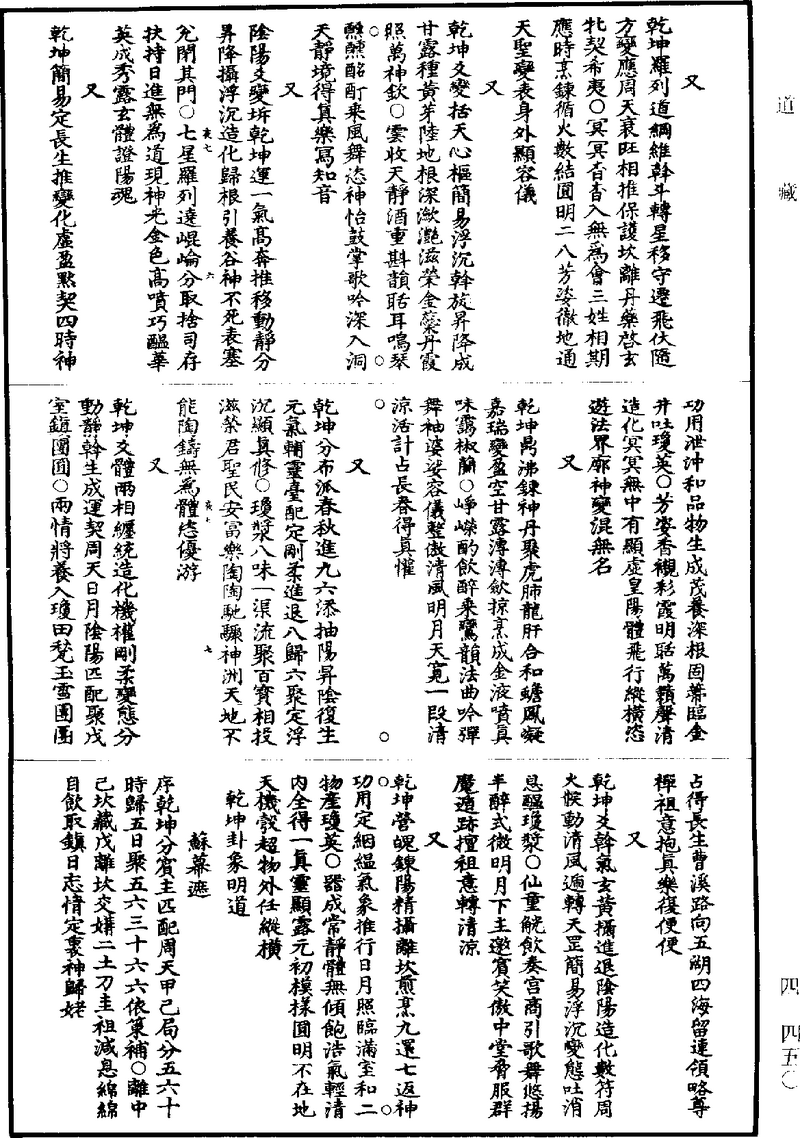 道藏
又
乾坤羅列道綱維斡斗轉星移守遷飛伏隨
方變應周天衰旺相推保護坎離丹藥啓玄
牝契希夷○冥冥杳杳入無爲會三姓相期
應時烹鍊循火數結圓明二八芳姿徹地通
天聖變表身外顯容儀
又
乾坤爻變括天心樞簡易浮沉斡旋昇降成
甘露種黃芽陸地根深瀲灩滋榮金藥丹霞
照萬神欽○雲收天靜酒重斟韻聒耳鳴琴
醺醺酩酊乘風舞恣神怡鼓掌歌吟深入洞
天靜境得眞樂寫知音
又
陰陽爻變坼乾坤運一氣高奔推移動靜分
昇降攝浮沉造化歸根引養谷神不死表塞
兊閉其門○七星羅列達崐崘分取捨司存
扶持日進無爲道現神光金色高噴巧醞華
英成秀露玄體證陽魂
又
乾坤簡易定長生推變化虛盈默契四時神
功用泄沖和品物生成茂養深根固蔕臨金
井吐瓊英○芳姿香襯彩霞明聒萬籟聲清
造化冥冥無中有顯虛皇陽體飛行縱橫恣
遊法界廓神變混無名
又
乾坤鼎沸鍊神丹聚虎肺龍肝合和蟾鳳凝
嘉瑞變盈空甘露漙漙飲掠烹成金液噴眞
味靄椒蘭○崢嶸酌飲醉乘鸞韻法曲吟彈
舞袖婆娑容儀整傲清風明月天寬一段清
涼活計占長春得眞懽
又
乾坤分布派春秋進九六添抽陽昇陰復生
元氣輔靈臺配定剛柔進退八歸六聚定浮
沉顯眞修○瓊漿八味一渠流聚百寶相投
滋榮君聖民安富樂陶陶馳驟神洲天地不
能陶鑄無爲體恣優游
又
乾坤爻體兩相纏統造化機權剛柔變態分
動靜斡生成運契周天日月陰陽匹配聚戊
室鎮團圓○兩情將養入瓊田甃玉雪團團
占得長生曹溪路向五湖四海留連領略尊
禪祖意抱眞樂復便便
又
乾坤爻斡氣玄黃搐進退陰陽造化數符周
火候動清風遁轉天罡簡易浮沉變態吐消
息醞瓊漿○仙童觥飲奏宮商引歌舞悠揚
半醉式微明月下主邀賓笑傲中堂脅服群
魔遁跡擅祖意轉清涼
又
乾坤營魄鍊陽精攝離坎煎烹九還七返神
功用定絪縕氣象推行日月照臨滿室和二
物產瓊英○器成常靜體無傾飽浩氣輕清
內全得一眞靈顯露元初模樣圓明不在地
天機彀超物外任縱橫
乾坤卦象明道
蘇幕遮
序乾坤分賓主匹配周天甲己局分五六十
時歸五日聚五六三十六六依策補○離中
己坎藏戊離坎交媾二土刀圭祖減息綿綿
自飲取鎮日志情定裏神歸姥
四 四五○